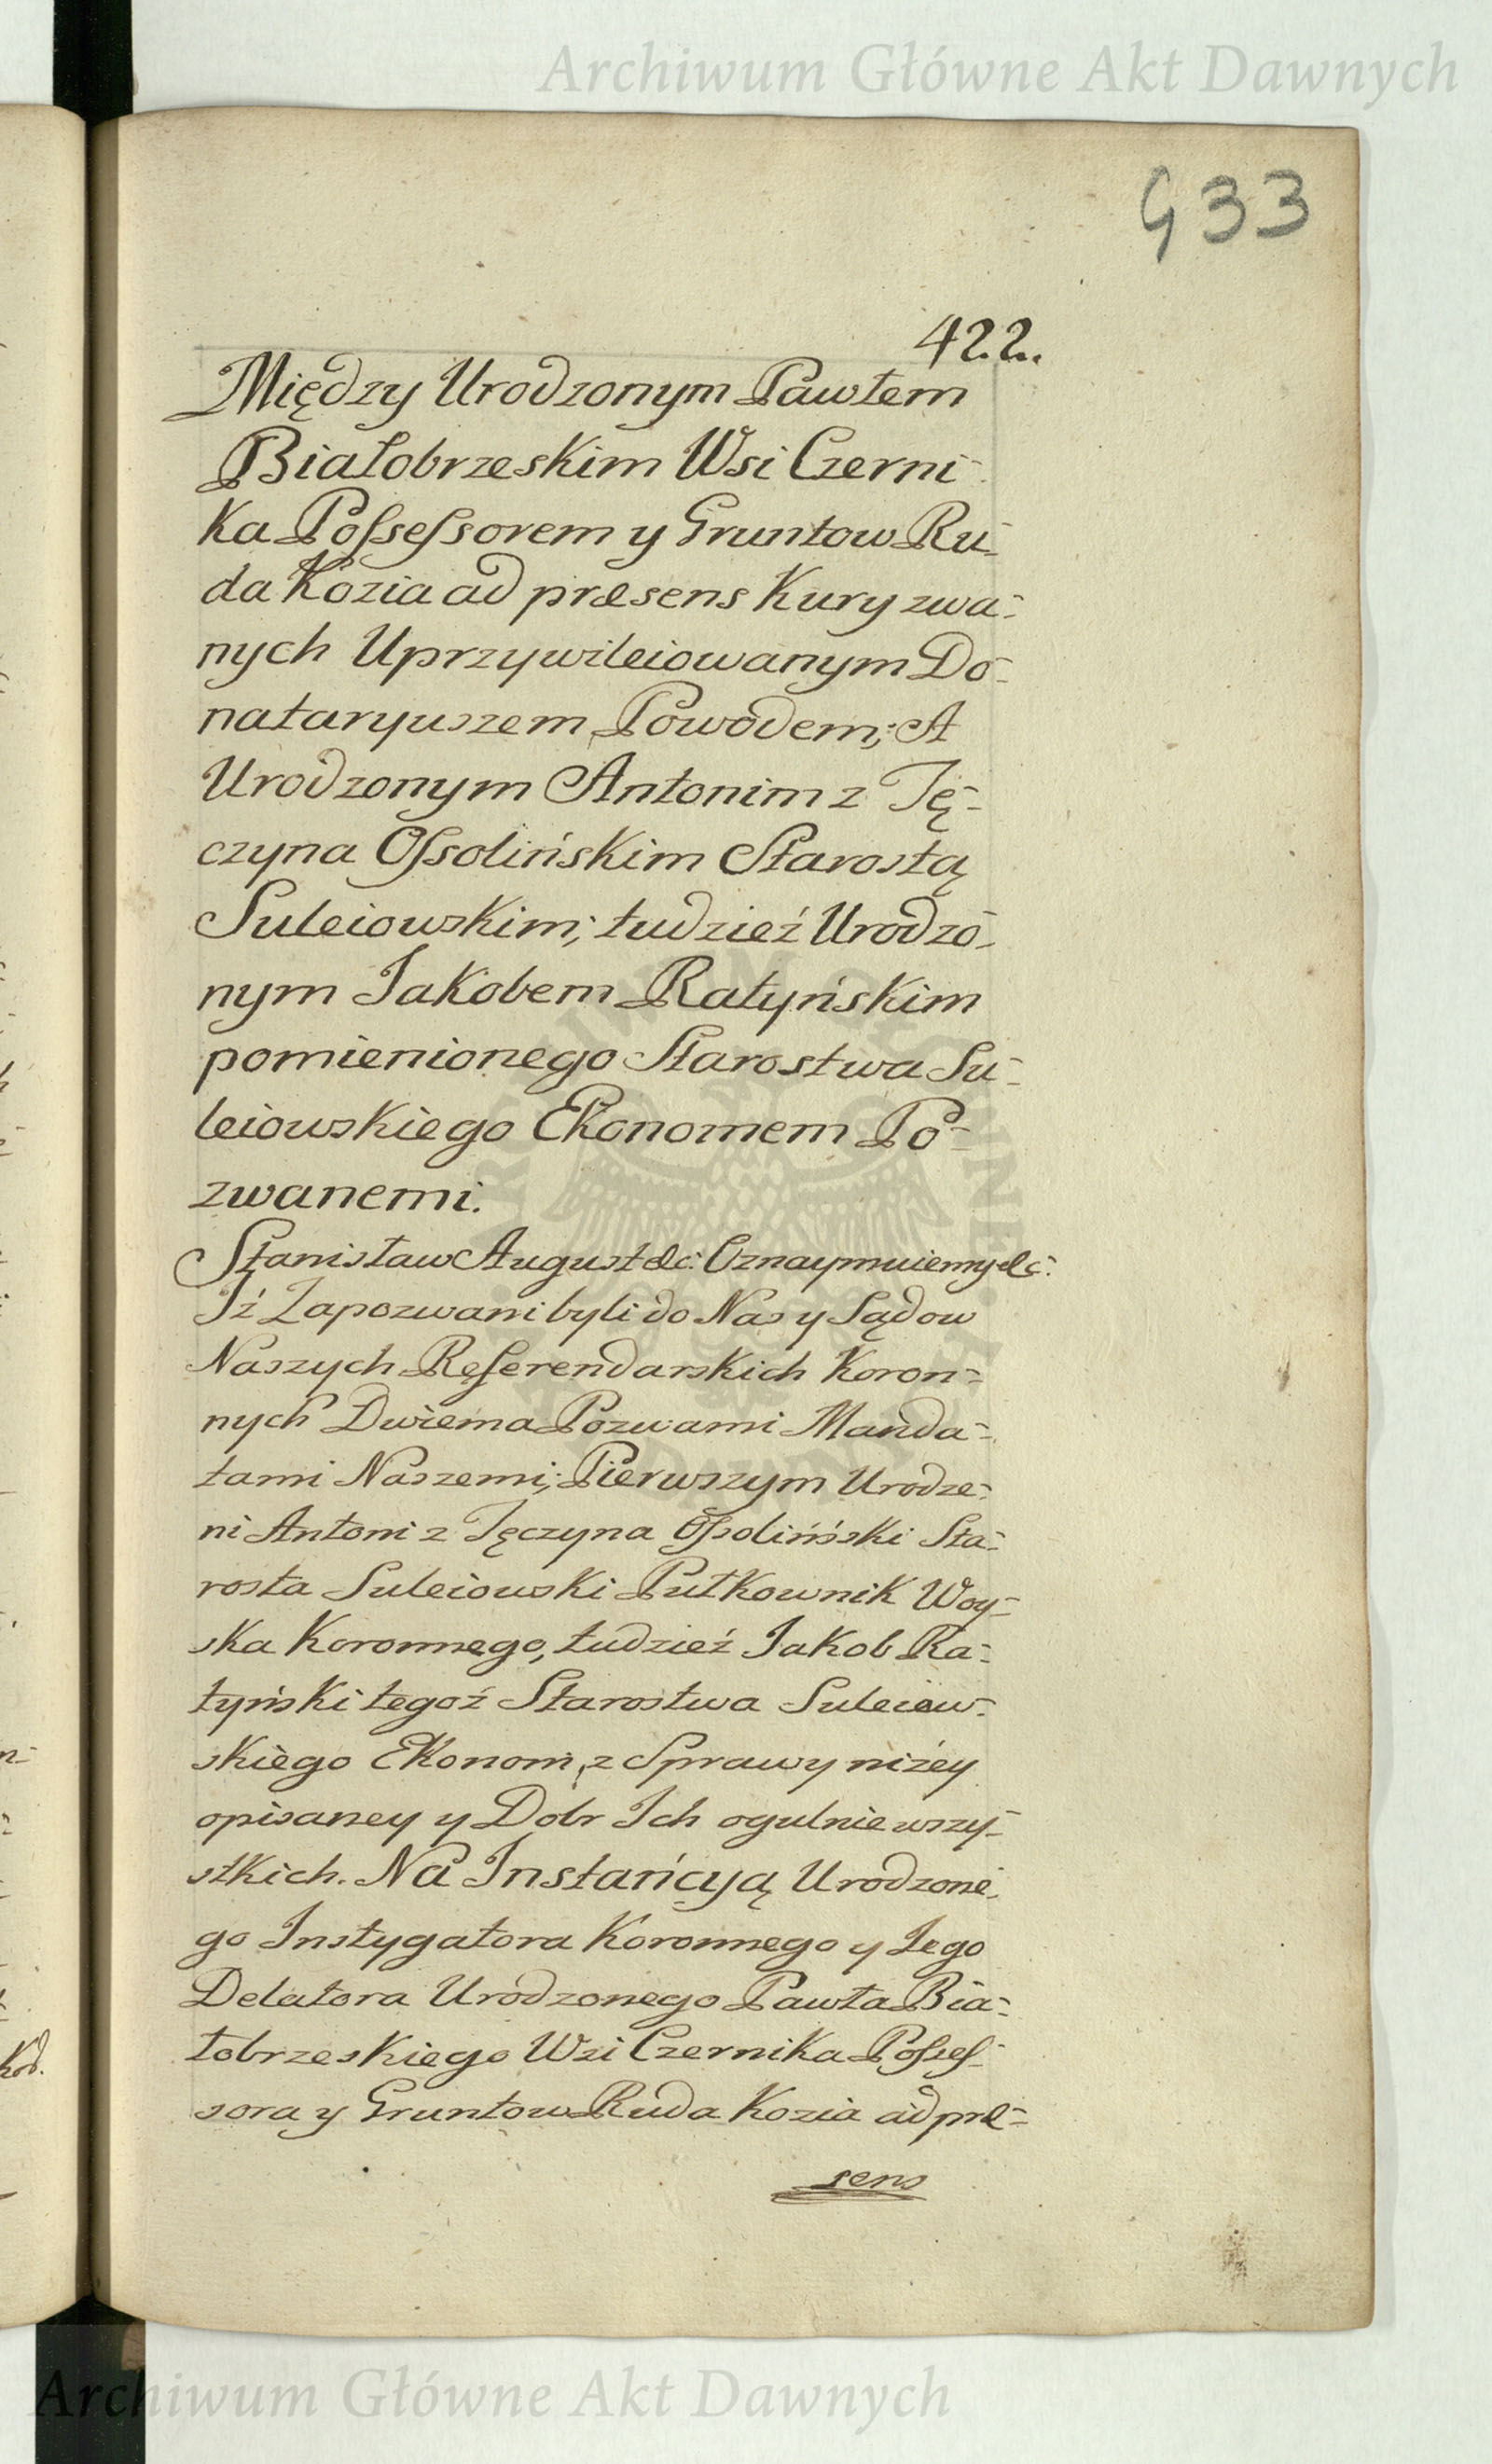 Archiwum Główne Akt Dawnych
433
422.
Między Urodzonym Pawłem
Białobrzeskim Wsi Czerni-
ka Possessorem y Gruntow Ru-
da Kozia ad præsens Kury zwa-
nych Uprzywileiowanym Do-
nataryuszem Powodem; A
Urodzonym Antonim z Tę-
czyna Ossolińskim Starostą
Suleiowskim; tudzież Urodzo-
nym Jakobem Ratyńskim
pomienionego Starostwa Su-
leiowskiego Ekonomem Po-
zwanemi.
Stanisław August &c: Oznaymuiemy &c:
Jż Zapozwani byli do Nas y Sądow
Naszych Referendarskich Koron-
nych Dwiema Pozwami Manda-
tami Naszemi; Pierwszym Urodze-
ni Antoni z Tęczyna Ossoliński Sta-
rosta Suleiowski Pułkownik Woy-
ska Koronnego, tudzież Jakob Ra-
tyński tegoż Starostwa Suleiow-
skiego Ekonom, z Sprawy niżey
opisaney y Dobr Ich ogulnie wszy-
stkich. Na Instańcyją Urodzone-
go Instygatora Koronnego y Jego
Delatora Urodzonego Pawła Bia-
łobrzeskiego Wsi Czernika Posses-
sora y Gruntow Ruda Kozia ad præ-
sens
Archiwum Główne Akt Dawnych